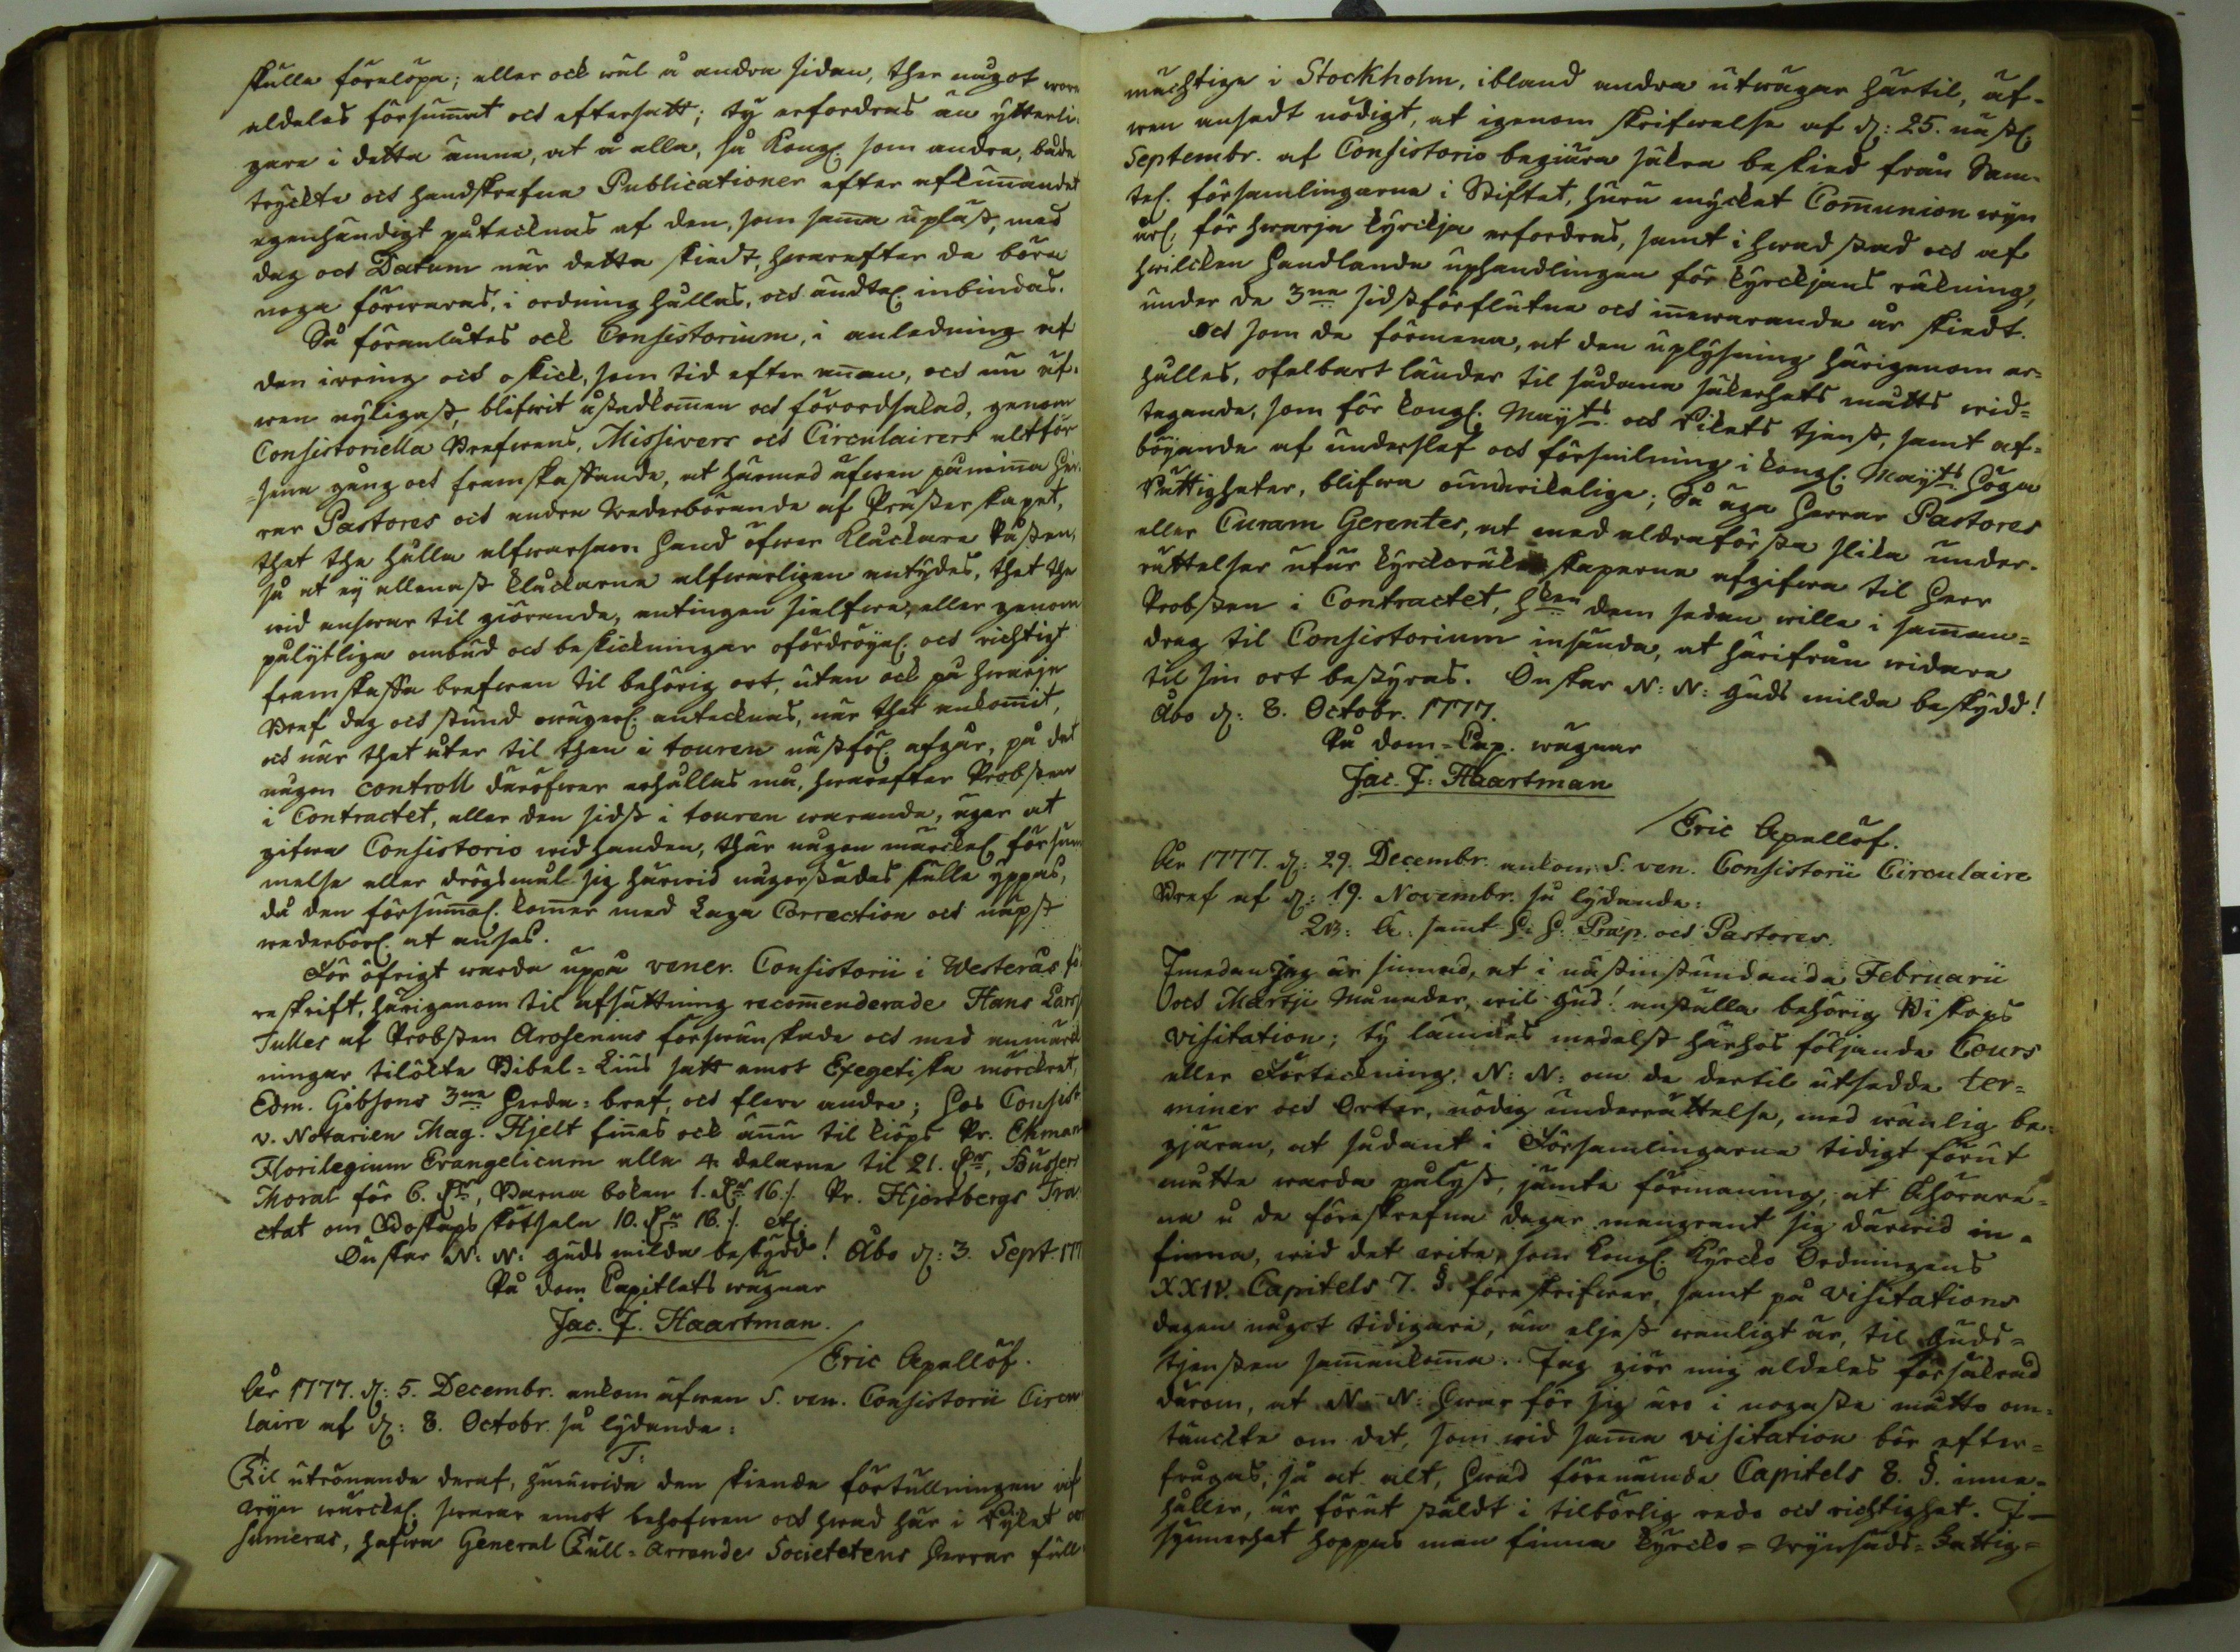 skulle förelöpa; eller ock wäl å andra sidan, ther något wore
aldeles försum̅at och eftersatt; ty erfordras än ytterli-
gare i detta ämne, at å alla, så Kongl. som andra, både
tryckte och handskrefne Publicationer efter afkun̅andet
egenhändigt påtecknas af den, som sam̅a upläst, med
dag och Datum när detta skiedt, hwarefter de böra
noga förwaras, i ordning hållas, och ändtel. inbindas.
Så föranlåtes ock Consistorium, i anledning af
den irring och oskick, som tid efter an̅an, och nu äf-
wen nyligast, blifwit åstadkom̅en och förordsakad, genom
Consistoriella Brefwens, Missivers och Circulairers altför
sena gång och framskaffande, at härmed äfwen påmin̅a Her-
rar Pastores och andra Wederbörande af Prästerskapet,
thet the hålla alfwarsam hand öfwer Klåckare Posten,
så at ej allenast klåckarne alfwarligen antydes, thet the
wid answar til giörande, antingen sielfwe, eller genom
pålytliga ombud och beskickningar ofördröyel. och richtigt
framskaffa brefwen til behörig ort, utan ock på hwarje
Bref dag och stund owägerl. antecknas, när thet ankom̅it,
och när thet åter til then i touren nästföl. afgår, på det
någon controll deröfwer erhållas må, hwarefter Probsten
i Contractet, eller den sidst i touren warande, äger at
gifwa Consistorio wid handen, thär någon märckel. försum-
melse eller drögsmål sig härwid någorstädes skulle yppas,
då den försum̅el. kom̅er med laga Correction och näpst
wederbörl. at anses.
För öfrigt warda uppå vener. Consistorii i Westerås fö-
reskrift, härigenom til afsättning recom̅enderade Hans Lars
Tulles af Probsten Arosenius förswänskade och med anmärck
ningar tilökte Bibel-Lius satt emot Exegetiska mörckret,
Edm. Gibsons 3ne Herda-bref, och flere andre; Hos Consist
v. Notarien Mag. Hjelt fin̅es ock än̅u til kiöps Pr. Ekman
Florilegium Evangelicum alla 4 delarne til 21. dlr, Büssers
Moral för 6. dlr, Barna boken 1. dlr 16./. Pr. Hjortbergs Tra
ctat om Boskaps skötseln 10. dlr 16./. etc.
Önskar N: N: Guds milda beskydd! Åbo d: 3. Sept 177
På Dom Capitlets wägnar
Jac. J. Haartman.
Eric Apellöf.
År 1777. d: 5. Decembr. ankom äfwen S. ven. Consistorii Circu
laire af d: 8. Octobr. så lydande:
T:
Til utrönande deraf, huruwida den skiende förtullningen af
wijn wärckel. swarar emot behofwen och hwad här i Rijket con
sumeras, hafwa General Tull-Arrende Societetens Herrar full
mächtige i Stockholm, ibland andra utwägar härtil, äf-
wen ansedt nödigt, at igenom skrifwelse af d: 25. nästl.
Septembr. af Consistorio begiära säkra beskied från Sam-
tel. församlingarna i Stiftet, huru myckit Com̅union wijn
årl. för hwarje kyrckja erfordras, samt i hwad stad och af
hwilcken Handlande uphandlingen för kyrckjans räkning,
under de 3ne sidstförflutne och in̅ewarande år skiedt.
Och som de förmena, at den uplysning härigenom er-
hålles, ofelbart länder til sådane säkerhets mått wid-
tagande, som för Kongl. Mayts och Rikets tjenst, samt af-
böjande af underslef och försnilning i Kongl. Mayts Höga
Rättigheter, blifwa oundwikelige; Så äga Herrar Pastores
eller Curam Gerentes, at med aldraförsta slika under-
rättelser utur kyrckoräkenskaperne afgifwa til Herr
Probsten i Contractet, hken dem sedan wille i sam̅an-
drag til Consistorium insända, at härifrån widare
til sin ort bestyras. Önskar N: N: Guds milda beskydd!
Åbo d: 8. Octobr. 1777.
På Dom-Cap. wägnar
Jac. J: Haartman
Eric Apellöf.
År 1777. d: 29. Decembr. ankom S. ven. Consistorii Circulaire
Bref af d: 19. Novembr. så lydande:
samt H. H. Præp. och Pastores.
Jmedan Jag är sinnad, at i nästinstundande Februarii
och Martji Månader, wil Gud! anställa behörig Biskops
Visitation; ty lämnas medelst härhos följande Cours
eller Förteckning, N: N: om de dertil utsedde Ter-
miner och Orter, nödig underrättelse, med wänlig be-
gjäran, at sådant i Församlingarne tidigt förut
måtte warda pålyst, jämte förmaning, at Åhörare-
ne å de föreskrefne dagar mangrant sig därwid in-
finna, wid det wite, som Kongl. Kyrcko Ordningens
XXIV. Capitels 7. §. föreskrifwer, samt på Visitations
dagen något tidigare, än eljest wanligt är, til Guds-
tjensten sam̅ankom̅a. Jag giör mig aldeles försäkrad
derom, at N: N: hwar för sig äro i nogaste måtto om-
tänckte om det, som wid sam̅a visitation bör efter-
frågas, så at alt, hwad förenämde Capitels 8. §. inne-
håller, är förut stäldt i tilbörlig redo och richtighet. I-
synnerhet hoppas man finna Kyrcko-Wijnsäds-Fattig-